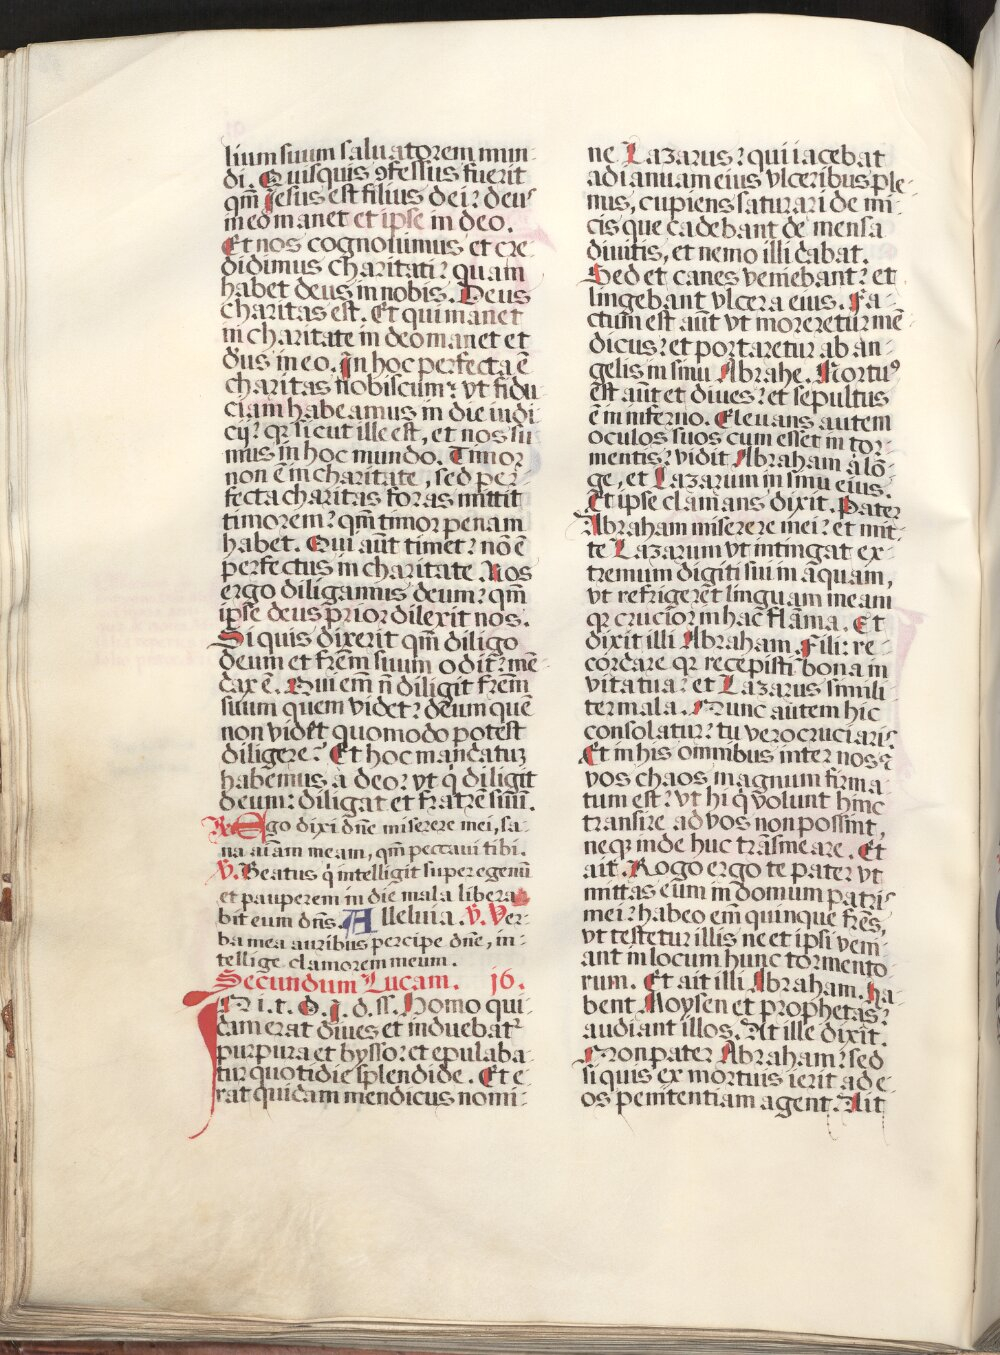 lium suum saluatorem mun-
di. Quisquis ꝯfessus fuerit
qm̄ Jesus est filius dei: deus
in eo manet et ipse in deo.
Et nos cognouimus et cre-
didimus charitati: quam
habet deus in nobis. Deus
charitas est. Et qui manet
in charitate in deo manet et
d̄us in eo. In hoc perfecta ē
charitas nobiscum: vt fidu
ciam habeamus in die iudi
cij: qr sicut ille est, et nos su
mus in hoc mundo. Timor
non ē in charitate, sed per
fecta charitas foras mittit
timorem: qm̄ timor penam
habet. Qui aūt timet: nō ē
perfectus in charitate. Nos
ergo diligamus deum: qm̄
ipse deus prior dilexit nos.
Si quis dixerit qm̄ diligo
deum et frēm suum odit: mē-
dax ē. Qui em̄ n̄ diligit frēm
suum quem videt: dēum quē
non videt quomodo potest
diligere? Et hoc mandatuꝫ
habemus a deo: vt q̄ diligit
deum: diligat et fratrē suū.
R. Ego dixi dn̄e miserere mei, sa-
na aīam meam, qm̄ peccaui tibi.
V. Beatus q̄ intelligit super egenū
et pauperem in die mala libera
bit eum dn̄s. Alleluia. V. Ver-
ba mea auribus percipe dn̄e, in-
tellige clamorem meum.
Secundum Lucam. j6.
In i. t. D. J. d. ss. Homo qui-
dam erat diues et induebatꝛ
purpura et bysso: et epulaba-
tur quotidie splendide. Et e-
rat quidam mendicus nomi-
ne Lazarus: qui iacebat
ad ianuam eius vlceribus ple-
nus, cupiens saturari de mi-
cis que cadebant de mensa
diuitis, et nemo illi dabat.
Sed et canes veniebant: et
lingebant vlcera eius. Fa-
ctum est aūt vt moreretur mē
dicus: et portaretur ab an-
gelis in sinu Abrahe. Mortuꝰ
est aūt et diues: et sepultus
ē in inferno. Eleuans autem
oculos suos cum esset in tor-
mentis: vidit Abraham a lō-
ge, et Lazarum in sinu eius.
Et ipse clamans dixit. Pater
Abraham miserere mei: et mit-
te Lazarum vt intingat ex-
tremum digiti sui in aquam,
vt refrigeret linguam meam
qr crucior in hac flāma. Et
dixit illi Abraham. Fili: re-
cordare qr recepisti bona in
vita tua: et Lazarus simili
ter mala. Nunc autem hic
consolatur: tu vero cruciaris
Et in his omnibus inter nos ⁊
vos chaos magnum firma-
tum est: vt hi q̄ volunt hinc
transire ad vos non possint,
neqꝫ inde huc trāsmeare. Et
ait. Rogo ergo te pater vt
mittas eum in domum patris
mei: habeo em̄ quinque frēs,
vt testetur illis ne et ipsi veni-
ant in locum hunc tormento-
rum. Et ait illi Abraham. Ha-
bent Moysen et prophetas:
audiant illos. At ille dixit.
Non pater Abraham: sed
si quis ex mortuis ierit ad e-
os penitentiam agent. Ait